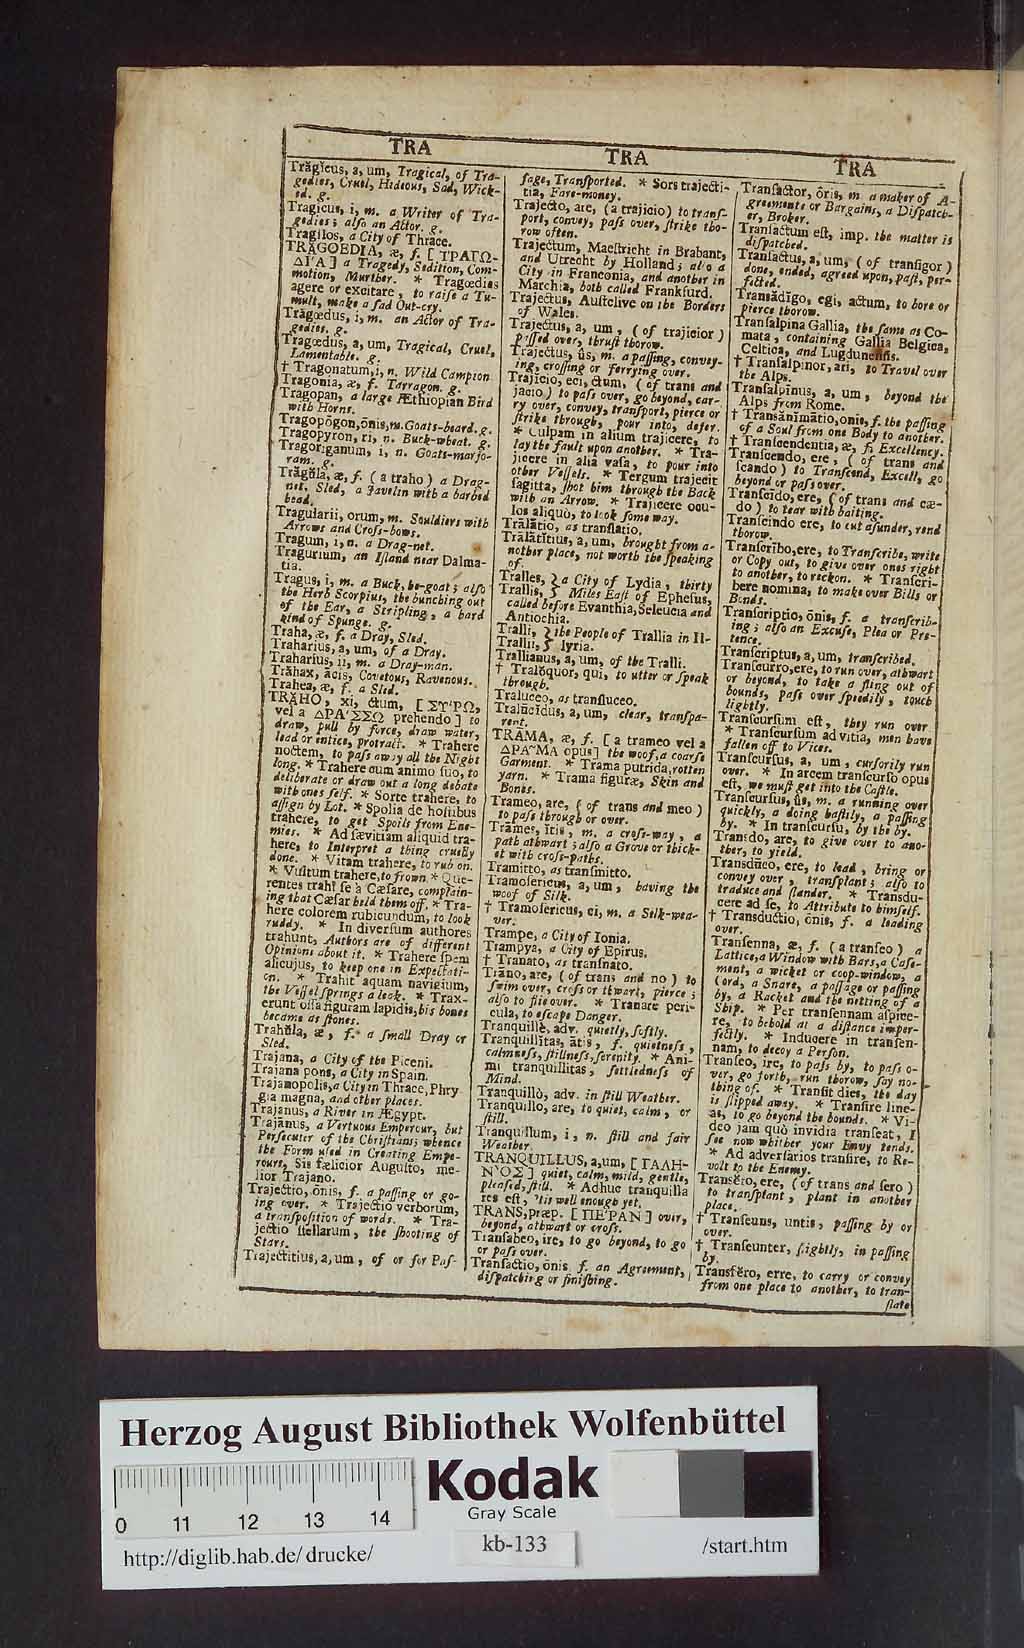 TRA
Trăgĭcus, a, um, Tragical, of Tra-
gedies, Cruel, Hideous, Sad, Wick-
ed. g.
Tragicus, i, m. a Writer of Tra-
gedies; also an Actor. g.
Tragilos, a City of Thrace.
TRĂGOEDIA, æ, f. [ ΤΡΑΓΩ-
ΔΙ'Α ] a Tragedy, Sedition, Com-
motion, Murther. * Tragœdias
agere or excitare, to raise a Tu-
mult, make a sad Out-cry.
Trăgœdus, i, m. an Actor of Tra-
gedies. g.
Tragœdus, a, um, Tragical, Cruel,
Lamentable. g.
† Tragonatum, i, n. Wild Campion
Tragonia, æ, f. Tarragon. g.
Tragopan, a large Æthiopian Bird
with Horns.
Tragopōgon, ōnis, m. Goats-beard. g.
Tragopyron, ri, n. Buck-wheat. g.
Tragoriganum, i, n. Goats-marjo-
ram. g.
Trăgŭla, æ, f. ( a traho ) a Drag-
net, Sled, a Javelin with a barbed
head.
Tragularii, orum, m. Souldiers with
Arrows and Cross-bows.
Tragum, i, n. a Drag-net.
Tragurium, an Island near Dalma-
tia.
Tragus, i, m. a Buck, he-goat; also
the Herb Scorpius, the bunching out
of the Ear, a Stripling, a hard
kind of Spunge. g.
Traha, æ, f. a Dray, Sled.
Traharius, a, um, of a Dray.
Traharius, ii, m. a Dray-man.
Trăhax, ācis, Covetous, Ravenous.
Trahea, æ, f. a Sled.
TRĂHO, xi, ctum, [ ΣΥΡΩ,
vel a ΔΡΑ'ΣΣΩ prehendo ] to
draw, pull by force, draw water,
lead or entice, protract. * Trahere
noctem, to pass away all the Night
long. * Trahere cum animo suo, to
deliberate or draw out a long debate
with ones self. * Sorte trahere, to
assign by Lot. * Spolia de hostibus
trahere, to get Spoils from Ene-
mies. * Ad sævitiam aliquid tra-
here, to Interpret a thing cruelly
done. * Vitam trahere, to rub on.
* Vultum trahere, to frown. * Que-
rentes trahi se à Cæsare, complain-
ing that Cæsar held them off. * Tra-
here colorem rubicundum, to look
ruddy. * In diversum authores
trahunt, Authors are of different
Opinions about it. * Trahere spem
alicujus, to keep one in Expectati-
on. * Trahit aquam navigium,
the Vessel springs a leak. * Trax-
erunt ossa figuram lapidis, his bones
became as stones.
Trahŭla, æ, f. a small Dray or
Sled.
Trajana, a City of the Piceni.
Trajana pons, a City in Spain.
Trajanopolis, a City in Thrace, Phry-
gia magna, and other places.
Trajanus, a River in Ægypt.
Trajanus, a Vertuous Emperour, but
Persecuter of the Christians; whence
the Form used in Creating Empe-
rours, Sis fælicior Augusto, me-
lior Trajano.
Trajectio, ōnis, f. a passing or go-
ing over. * Trajectio verborum,
a transposition of words. * Tra-
jectio stellarum, the shooting of
Stars.
Trajectitius, a, um, of or for Pas-
TRA
sage, Transported. * Sors trajecti-
tia, Fare-money.
Trajecto, are, (a trajicio) to trans-
port, convey, pass over, strike tho-
row often.
Trajectum, Maestricht in Brabant,
and Utrecht by Holland; also a
City in Franconia, and another in
Marchia, both called Franksurd.
Trajectus, Austclive on the Borders
of Wales.
Trajectus, a, um, ( of trajicior )
passed over, thrust thorow.
Trajectus, ûs, m. a passing, convey-
ing, crossing or ferrying over.
Trajicio, eci, ctum, ( of trans and
jacio ) to pass over, go beyond, car-
ry over, convey, transport, pierce or
strike through, pour into, defer.
* Culpam in alium trajicere, to
lay the fault upon another. * Tra-
jicere in alia vasa, to pour into
other Vessels. * Tergum trajecit
sagitta, shot him through the Back
with an Arrow. * Trajicere ocu-
los aliquò, to look some way.
Trālātio, as translatio.
Trālātĭtius, a, um, brought from a-
nother place, not worth the speaking
of.
Tralles, } a City of Lydia, thirty
Trallis, } Miles East of Ephesus,
called before Evanthia, Seleucia and
Antiochia.
Tralli, } the People of Trallia in Il-
Trallii, } lyria.
Trallianus, a, um, of the Tralli.
† Tralŏquor, qui, to utter or speak
through.
Traluceo, as transluceo.
Tralūcĭdus, a, um, clear, transpa-
rent.
TRĀMA, æ, f. [ a trameo vel a
ΔΡΑ~ΜΑ opus ] the woof, a coarse
Garment. * Trama putrida, rotten
yarn. * Trama figuræ, Skin and
Bones.
Trameo, are, ( of trans and meo )
to pass through or over.
Trāmes, ĭtis, m. a cross-way, a
path athwart; also a Grove or thick-
et with cross-paths.
Tramitto, as transmitto.
Tramosericus, a, um, having the
woof of Silk.
† Tramosericus, ci, m. a Silk-wea-
ver.
Trampe, a City of Ionia.
Trampya, a City of Epirus.
† Tranato, as transnato.
Trāno, are, ( of trans and no ) to
swim over, cross or thwart, pierce;
also to flie over. * Tranare peri-
cula, to escape Danger.
Tranquillè, adv. quietly, softly.
Tranquillĭtas, ātis, f. quietness,
calmness, stillness, serenity. * Ani-
mi tranquillitas, settledness of
Mind.
Tranquillò, adv. in still Weather.
Tranquillo, are, to quiet, calm, or
still.
Tranquillum, i, n. still and fair
Weather.
TRANQUILLUS, a, um, [ ΓΑΛΗ-
Ν`ΟΣ ] quiet, calm, mild, gentle,
pleased, still. * Adhuc tranquilla
res est, 'tis well enough yet.
TRANS, præp. [ ΠΕ'ΡΑΝ ] over,
beyond, athwart or cross.
Transabeo, ire, to go beyond, to go
or pass over.
Transactio, ōnis, f. an Agreement,
dispatching or finishing.
TRA
Transactor, ōris, m. a maker of A-
greements or Bargains, a Dispatch-
er, Broker.
Transactum est, imp. the matter is
dispatched.
Transactus, a, um, ( of transigor )
done, ended, agreed upon, past, per-
fected.
Transădĭgo, egi, actum, to bore or
pierce thorow.
Transalpina Gallia, the same as Co-
mata, containing Gallia Belgica,
Celtica, and Lugdunensis.
† Transalpinor, ari, to Travel over
the Alps.
Transalpīnus, a, um, beyond the
Alps from Rome.
† Transănĭmātio, onis, f. the passing
of a Soul from one Body to another.
† Transcendentia, æ, f. Excellency.
Transcendo, ere, ( of trans and
scando ) to Transcend, Excell, go
beyond or pass over.
Transcīdo, ere, ( of trans and cæ-
do ) to tear with baiting.
Transcindo ere, to cut asunder, rend
thorow.
Transcrībo, ere, to Transcribe, write
or Copy out, to give over ones right
to another, to reckon. * Transcri-
bere nomina, to make over Bills or
Bonds.
Transcriptio, ōnis, f. a transcrib-
ing; also an Excuse, Plea or Pre-
tence.
Transcriptus, a, um, transcribed.
Transcurro, ere, to run over, athwart
or beyond, to take a fling out of
bounds, pass over speedily, touch
lightly.
Transcursum est, they run over
* Transcursum ad vitia, men have
fallen off to Vices.
Transcursus, a, um, cursorily run
over. * In arcem transcurso opus
est, we must get into the Castle.
Transcursus, ûs, m. a running over
quickly, a doing hastily, a passing
by. * In transcursu, by the by.
Transdo, are, to give over to ano-
ther, to yield.
Transdūco, ere, to lead, bring or
convey over, transplant; also to
traduce and slander. * Transdu-
cere ad se, to Attribute to himself.
† Transductio, ōnis, f. a leading
over.
Transenna, æ, f. ( a transeo ) a
Lattice, a Window with Bars, a Case-
ment, a wicket or coop-window, a
Cord, a Snare, a passage or passing
by, a Racket and the netting of a
Ship. * Per transennam aspice-
re, to behold at a distance imper-
fectly. * Inducere in transen-
nam, to decoy a Person.
Transeo, ire, to pass by, to pass o-
ver, go forth, run thorow, say no-
thing of. * Transit dies, the day
is slipped away. * Transire line-
as, to go beyond the bounds. * Vi-
deo jam quò invidia transeat, I
see now whither your Envy tends.
* Ad adversarios transire, to Re-
volt to the Enemy.
Transĕro, ere, ( of trans and sero )
to transplant, plant in another
place.
† Transeuns, untis, passing by or
over.
† Transeunter, slightly, in passing
by.
Transfĕro, erre, to carry or convey
from one place to another, to tran-
slate
Herzog August Bibliothek Wolfenbüttel
Kodak
Gray Scale
0 11 12 13 14
kb-133
http://diglib.hab.de/drucke/
/start.htm